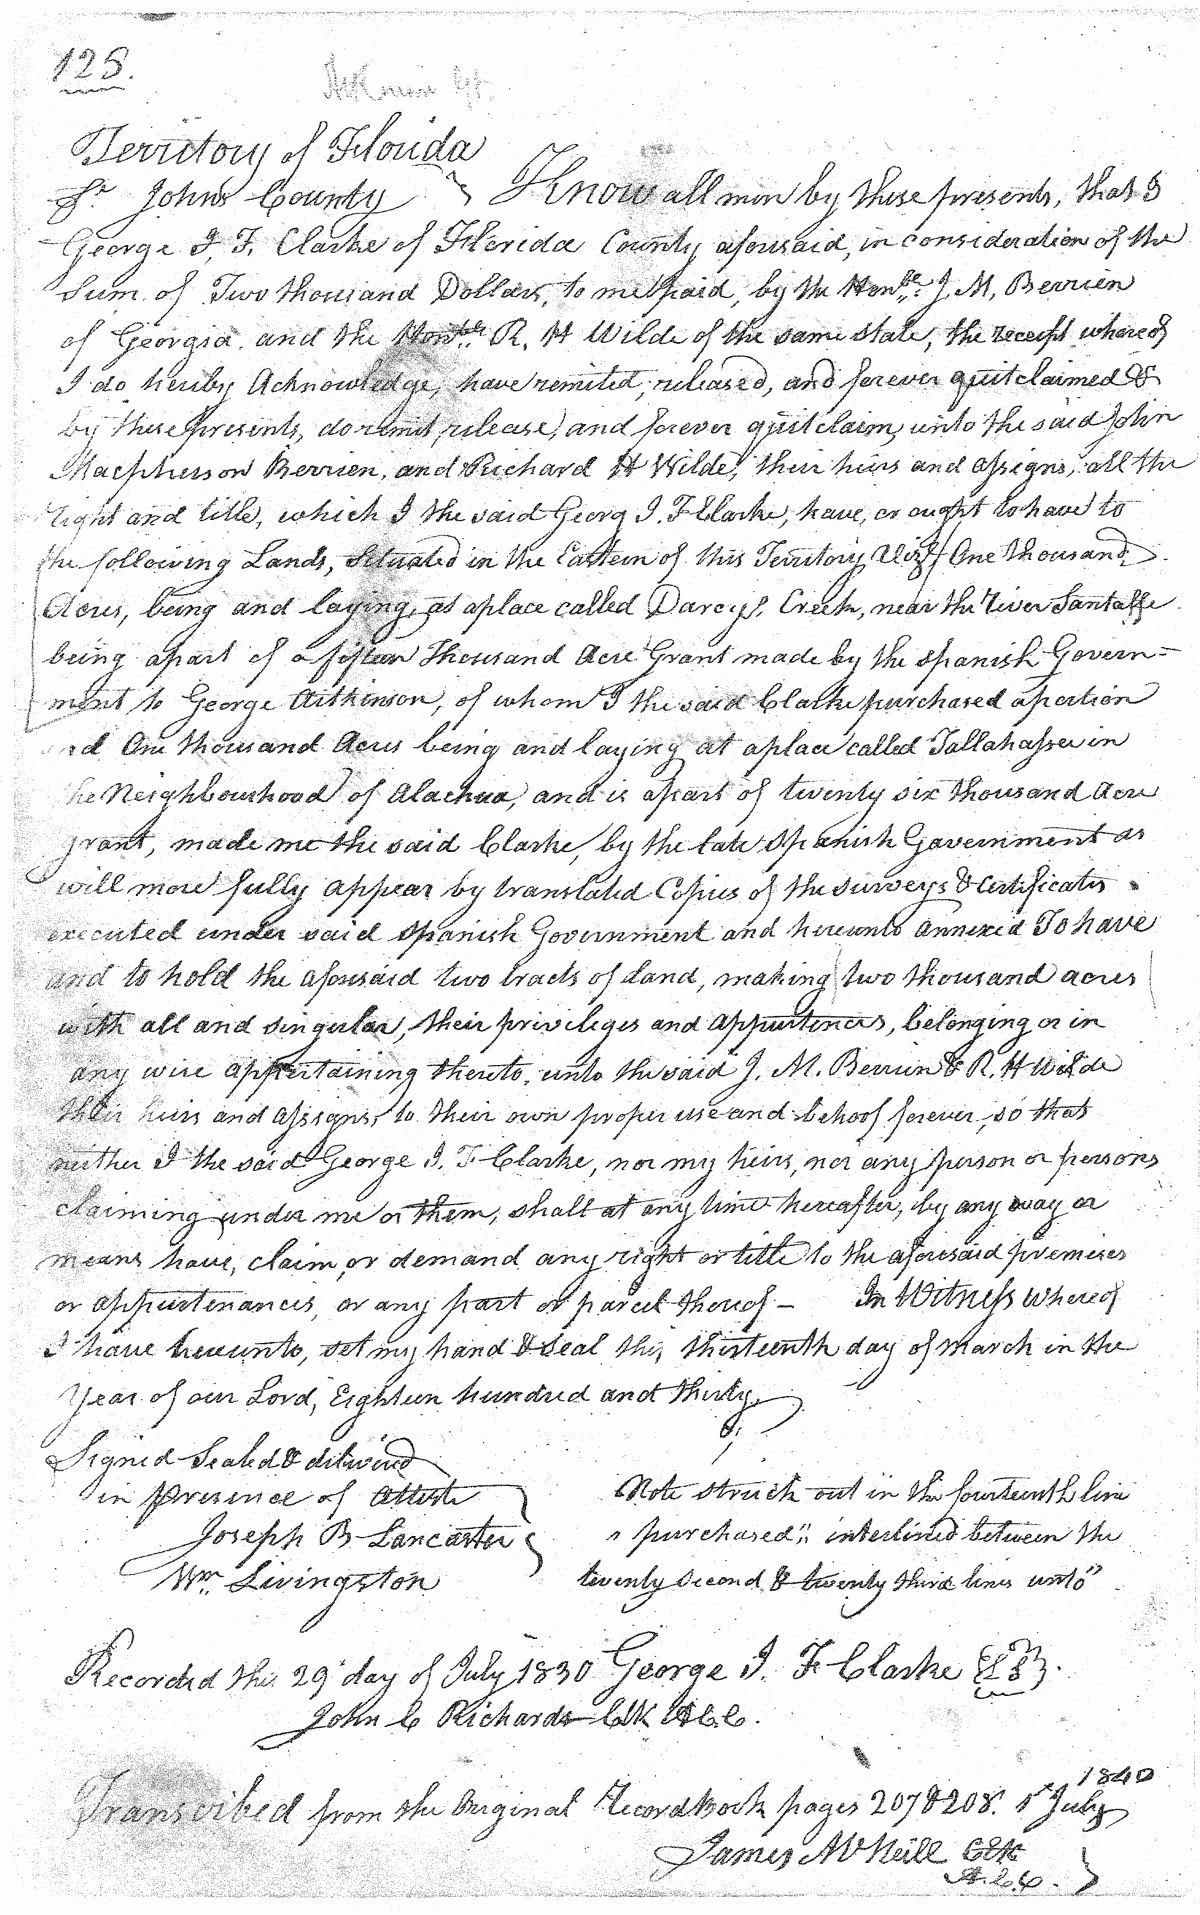 125.
Territory of Florida
St Johns County } Know all men by these presents, that I
George I. F. Clarke of Florida County aforesaid, in consideration of the
Sum of Two thousand Dollars, to me paid, by the Honble. J. M. Berrien
of Georgia and the Honble R. H Wilde of the same state, the receipt whereof
I do hereby Acknowledge, have remited, released, and forever quitclaimed &
by these presents, do remit, release, and forever quitclaim, unto the said John
Macpherson Berrien, and Richard H Wilde, their heirs and assigns, all the
right and title, which I the said Georg I. F Clarke, have, or ought to have to
the following Lands, situated in the Eastern of this Territory Viz, One thousand
Acres, being and laying, at a place called Darcys, Creek, near the river Santaffe
being apart of a fifteen Thousand Acre Grant made by the spanish Govern=
ment to George Aitkinson, of whom I the said Clarke purchased a portion
and One thousand Acres being and laying at a place called Tallahassee in
the Neighbourhood of Alachua, and is apart of twenty six thousand Acre
grant, made me the said Clarke, by the late Spanish Government as
will more fully appear by translated Copies of the surveys & Certificates
executed under said Spanish Government and hereunto Annexed To have
and to hold the aforesaid two tracts of Land, making two thousand acres
with all and singular, their priviliges and appurtences, belonging or in
any wise appertaining thereto, unto the said J. M. Berrien & R. H Wilde
their heirs and assigns, to their own proper use and behoof forever, so that
neither I the said George I. F Clarke, nor my heirs, nor any person or persons
claiming under me or them, shall at any time hereafter, by any way or
means have, claim, or demand any right or title to the aforesaid premises
or appurtenances, or any part or parcel thereof – In Witness whereof
I have hereunto, set my hand & seal this thirteenth day of March in the
Year of our Lord, Eighteen hundred and thirty,
Signed Sealed & deliverd
in presence of Atteste
Joseph B Lancaster
Wm. Livingston
Note struck out in the fourteenth line
"purchased", interlined between the
twenty second & twenty third lines unto"
Recorded this 29 day of July 1830 George I. F Clarke {LS}.
John C Richards Clk A.C.C.
Transcribed from the Original Record Book pages 207 & 208. 1st July 1840
James McNeill Clk
A.C.C.